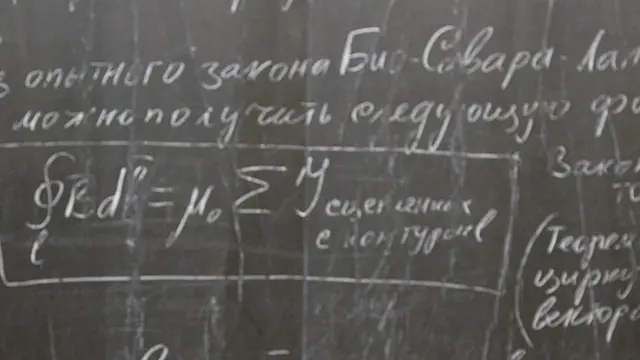 опытного закона Био-Савара-Лап
можно получить следующую фо
Закон
∮B dl = μ₀ Σ J сцепленных
l с контуром l
(Теорем
цирку
вектора